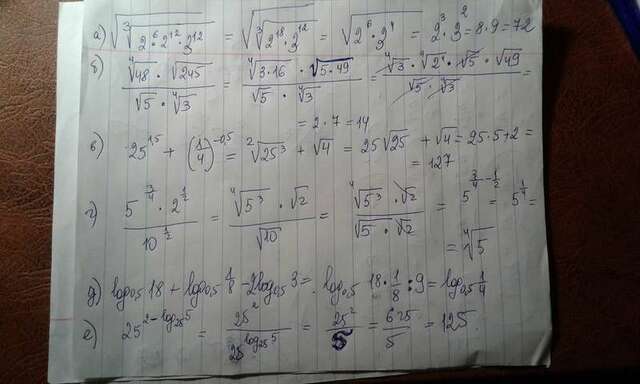 а) √∛(2⁶·2¹²·3¹²) = √∛(2¹⁸·3¹²) = √(2⁶·3⁴) = 2³·3² = 8·9 = 72
б) (⁴√48 · √245)/(√5 · ⁴√3) = (⁴√(3·16) · √(5·49))/(√5 · ⁴√3) = (⁴√3 · ⁴√2⁴ · √5 · √49)/(√5 · ⁴√3) =
= 2·7 = 14
в) 25^1,5 + (1/4)^-0,5 = ²√25³ + √4 = 25√25 + √4 = 25·5+2 =
= 127
г) (5^(3/4) · 2^(1/2))/10^(1/2) = (⁴√5³ · √2)/√10 = (⁴√5³ · √2)/(√5 · √2) = 5^(3/4 - 1/2) = 5^(1/4) =
= ⁴√5
д) log₀,₅18 + log₀,₅ 1/8 - 2log₀,₅3 = log₀,₅ 18·1/8 : 9 = log₀,₅ 1/4
е) 25^(2-log₂₅5) = 25²/25^(log₂₅5) = 25²/5 = 625/5 = 125